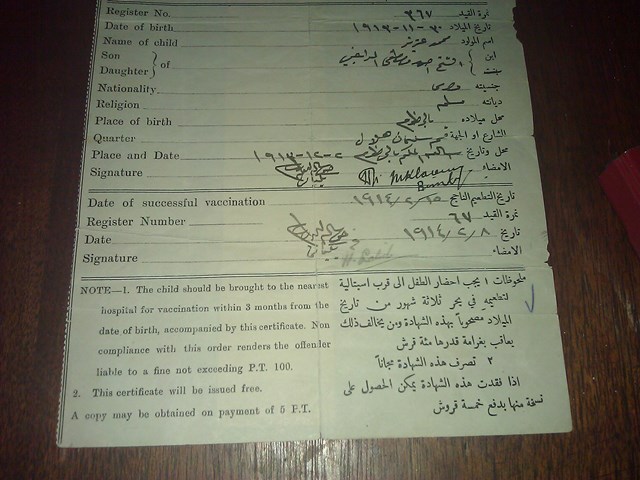 Register No. ٣٦٧ نمرة القيد
Date of birth ٣٠-١١-١٩١٣ تاريخ الميلاد
Name of child محمد عزيز اسم المولود
Son } of ابن {
Daughter } بنت {
Nationality مصرى جنسيته
Religion مسلم ديانته
Place of birth بالخرطوم محل ميلاده
Quarter الشارع او الجهة
Place and Date ٢-١٢-١٩١٣ محل وتاريخ
Signature الامضاء
Date of successful vaccination ١٩١٤/٢/١٥ تاريخ التطعيم الناجح
Register Number ٦٧ نمرة القيد
Date ١٩١٤/٢/٨ تاريخ
Signature الامضاء
NOTE—1. The child should be brought to the nearest
hospital for vaccination within 3 months from the
date of birth, accompanied by this certificate. Non
compliance with this order renders the offender
liable to a fine not exceeding P.T. 100.
2. This certificate will be issued free.
A copy may be obtained on payment of 5 P.T.
ملحوظات ١ يجب احضار الطفل الى قرب اسبتالية
لتطعيمه في بحر ثلاثة شهور من تاريخ
الميلاد مصحوباً بهذه الشهادة ومن يخالف ذلك
يعاقب بغرامة قدرها مئة قرش
٢ تصرف هذه الشهادة مجاناً
اذا فقدت هذه الشهادة يمكن الحصول على
نسخة منها بدفع خمسة قروش